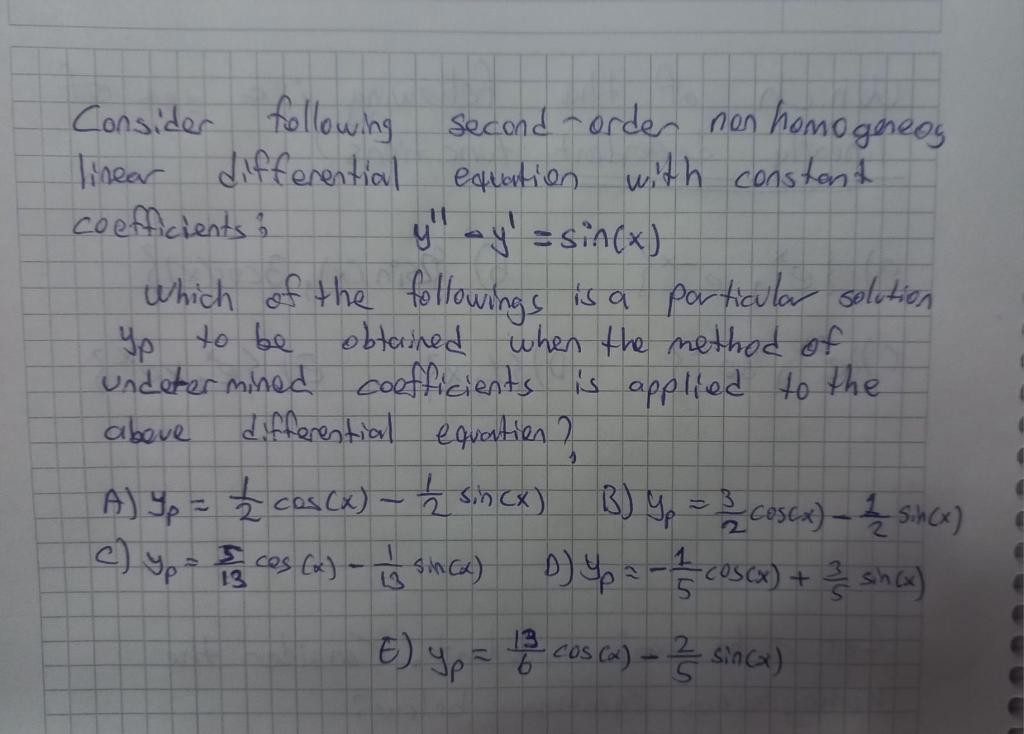 Consider following second-order non homogeneos
linear differential equation with constant
coefficients: y'' - y' = sin(x)
Which of the followings is a particular solution
yp to be obtained when the method of
undetermined coefficients is applied to the
above differential equation?
A) yp = 1/2 cos(x) - 1/2 sin(x) B) yp = 3/2 cos(x) - 1/2 sin(x)
C) yp = 5/13 cos(x) - 1/13 sin(x) D) yp = -1/5 cos(x) + 3/5 sin(x)
E) yp = 13/6 cos(x) - 2/5 sin(x)